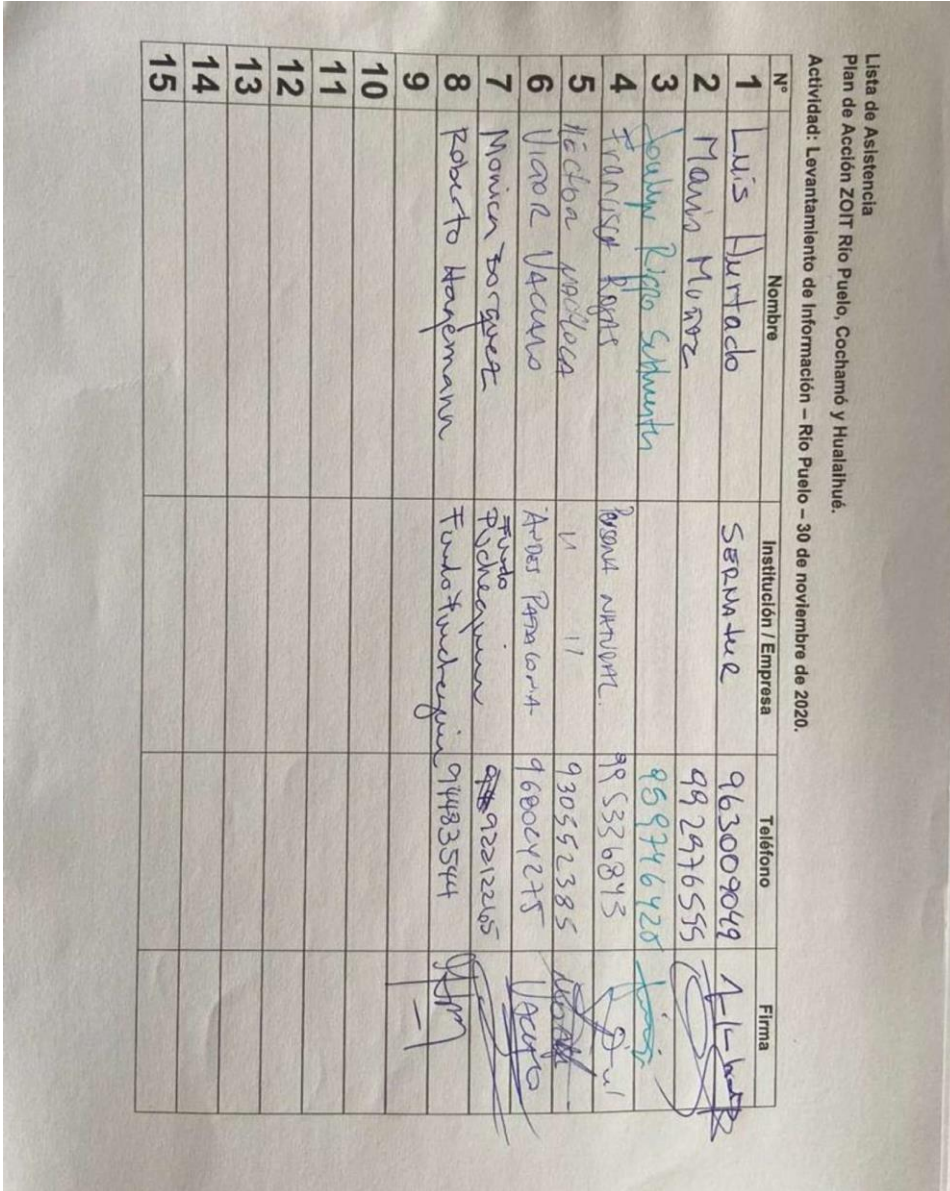 Lista de Asistencia
Plan de Acción ZOIT Río Puelo, Cochamó y Hualaihué.
Actividad: Levantamiento de Información – Río Puelo – 30 de noviembre de 2020.
N° Nombre Institución / Empresa Teléfono Firma
1 Luis Hurtado SERNAtuR 963009049
2 Mario Muñoz 992976555
3 Riffo 959746420
4 Francisca Rojas Persona NATURAL. 995336843
5 Héctor 930552385
6 VIGOR VACUNO ANDES PATAGONIA
7 Monica Borquez Fundo 922212265
8 Roberto Hagemann Fundo 94483544
9
10
11
12
13
14
15